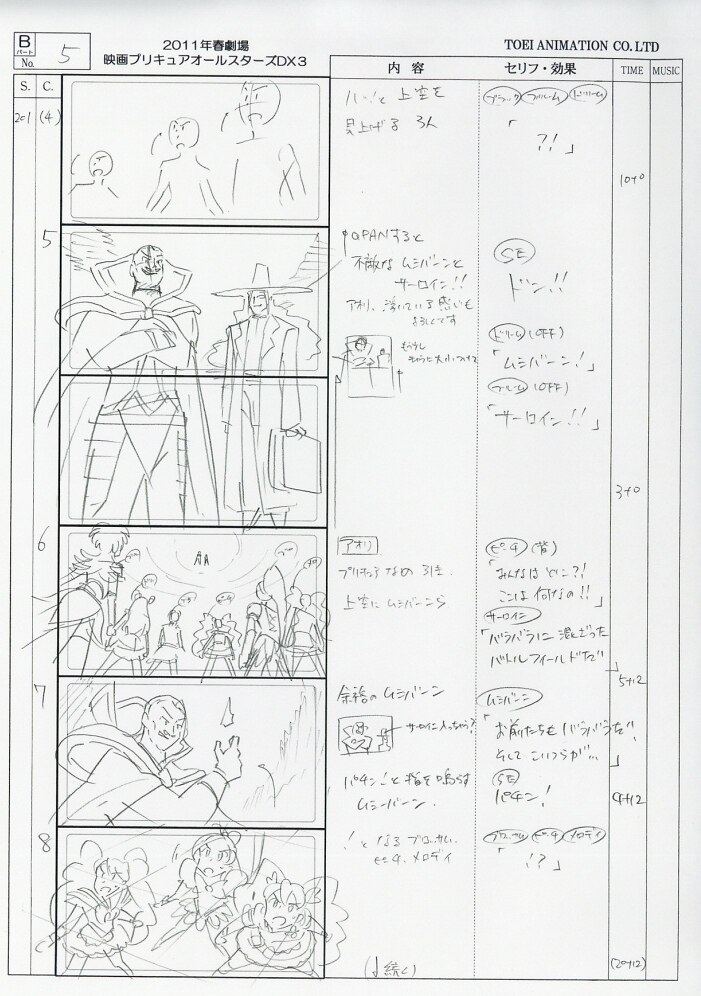 B
パート
No. 5
2011年春劇場
映画プリキュアオールスターズDX3
TOEI ANIMATION CO.LTD
S. C. 内容 セリフ・効果 TIME MUSIC
201 (4)
ハッ!と上空を
見上げる 3人
ブラック ブルーム ドリーム
「?!」
10+0
5
PANすると
不敵な ムシバーンと
サーロイン!!
アオリ、浮いている感じも
よろしくです
もう少し
SE
ドン!!
ドリーム (OFF)
「ムシバーン!」
ブルーム (OFF)
「サーロイン!!」
3+0
6
アオリ
プリキュアなめ 引き.
上空に ムシバーンら
ピーチ
「みんなは どこ?!
ここは 何なの!!」
サーロイン
「バラバラに 混ざった
バトルフィールドだ」
5+12
7
余裕の ムシバーン
サーロイン入っちゃう?
パチン!と 指を鳴らす
ムシバーン.
ムシバーン
「お前たちも バラバラだ!
そして こいつらが…」
SE
パチン!
4+12
8
!となる ブロッサム.
ピーチ、メロディ
ブロッサム ピーチ メロディ
「!?」
(↓続く)
(20+12)